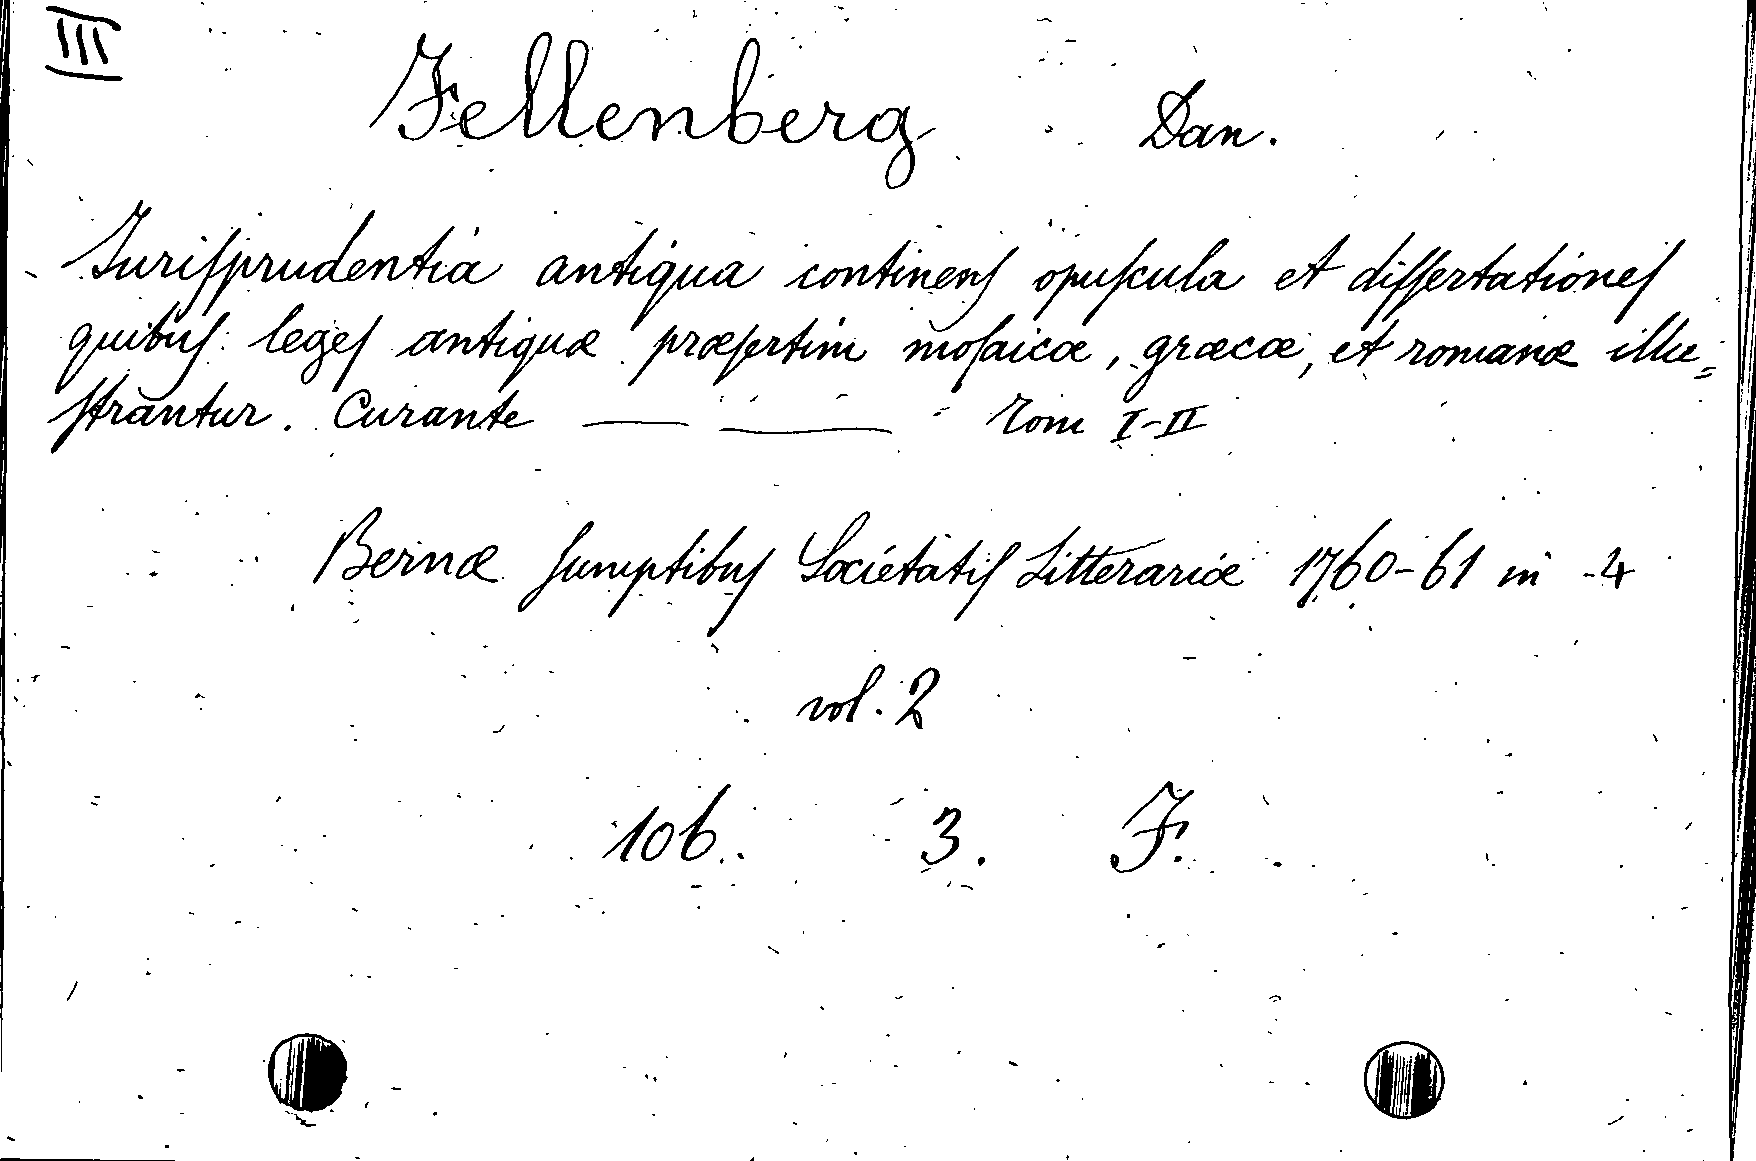 III
Fellenberg Dan.
Jurisprudentia antiqua continens opuscula et dissertationes
quibus leges antiquæ præsertim mosaicæ, græcæ, et romanæ illu=
strantur. Curante — — Tom I-II
Bernæ sumptibus Societatis Litterariæ 1760-61 in -4
vol. 2
106. 3. F.